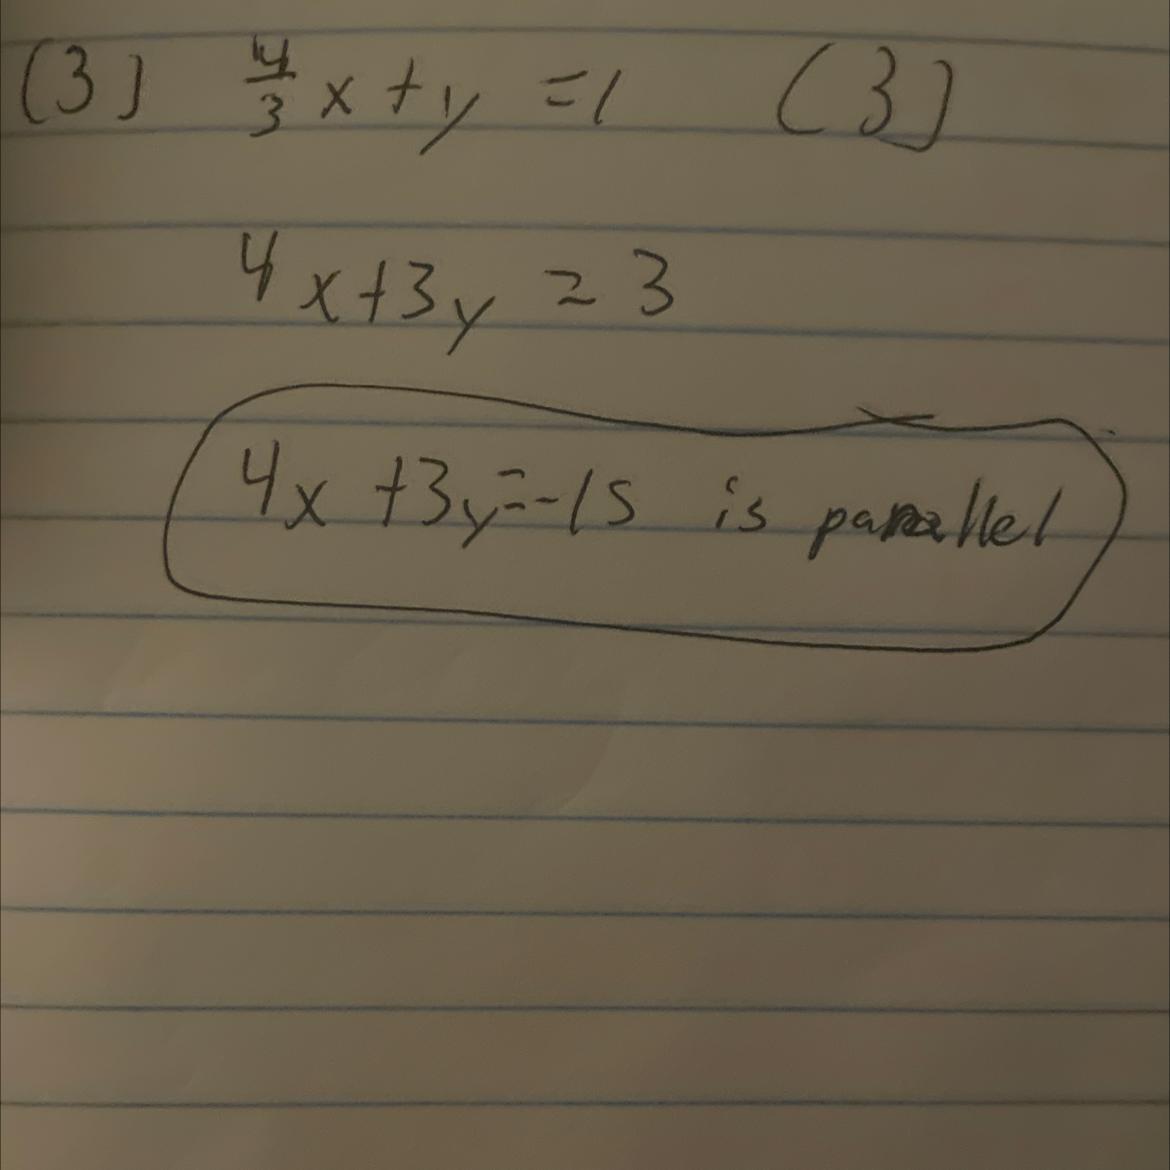 (3) 4/3 x + y = 1 (3)
4x+3y = 3
4x +3y=-15 is parallel